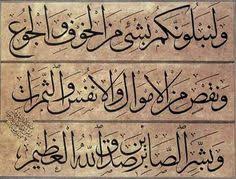 ولنبلونكم بشئ من الخوف والجوع
ونقص من الاموال والانفس والثمرات
وبشر الصابرين صدق الله العظيم